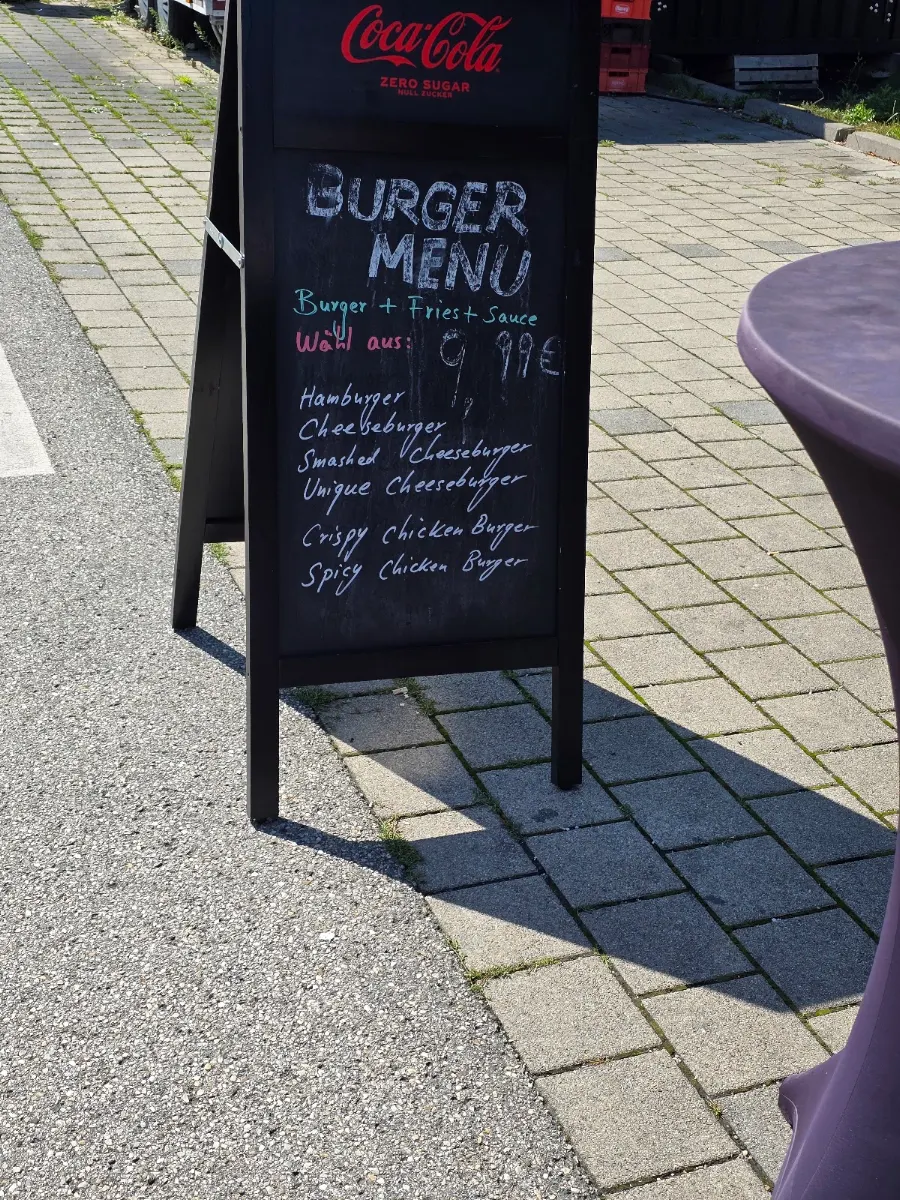 Coca-Cola
ZERO SUGAR
NULL ZUCKER
BURGER
MENU
Burger + Fries + Sauce
Wähl aus: 9,99€
Hamburger
Cheeseburger
Smashed Cheeseburger
Unique Cheeseburger
Crispy Chicken Burger
Spicy Chicken Burger